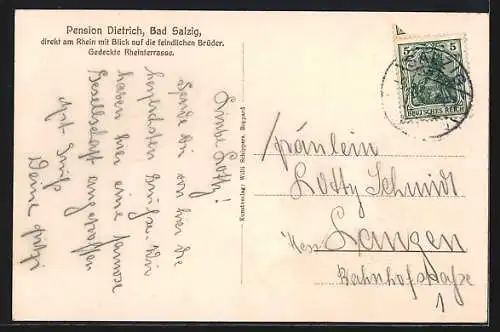 Pension Dietrich, Bad Salzig,
direkt am Rhein mit Blick auf die feindlichen Brüder.
Gedeckte Rheinterrasse.
Lotty!
Sende dir von hier die
herzlichsten Grüße. Wir
haben hier eine famose
Gesellschaft angetroffen
Gruß
Deine
Kunstverlag Willi Schippers, Boppard
5 5
DEUTSCHES REICH
Fräulein
Lotty Schmidt
Langen
Bahnhofstraße
1